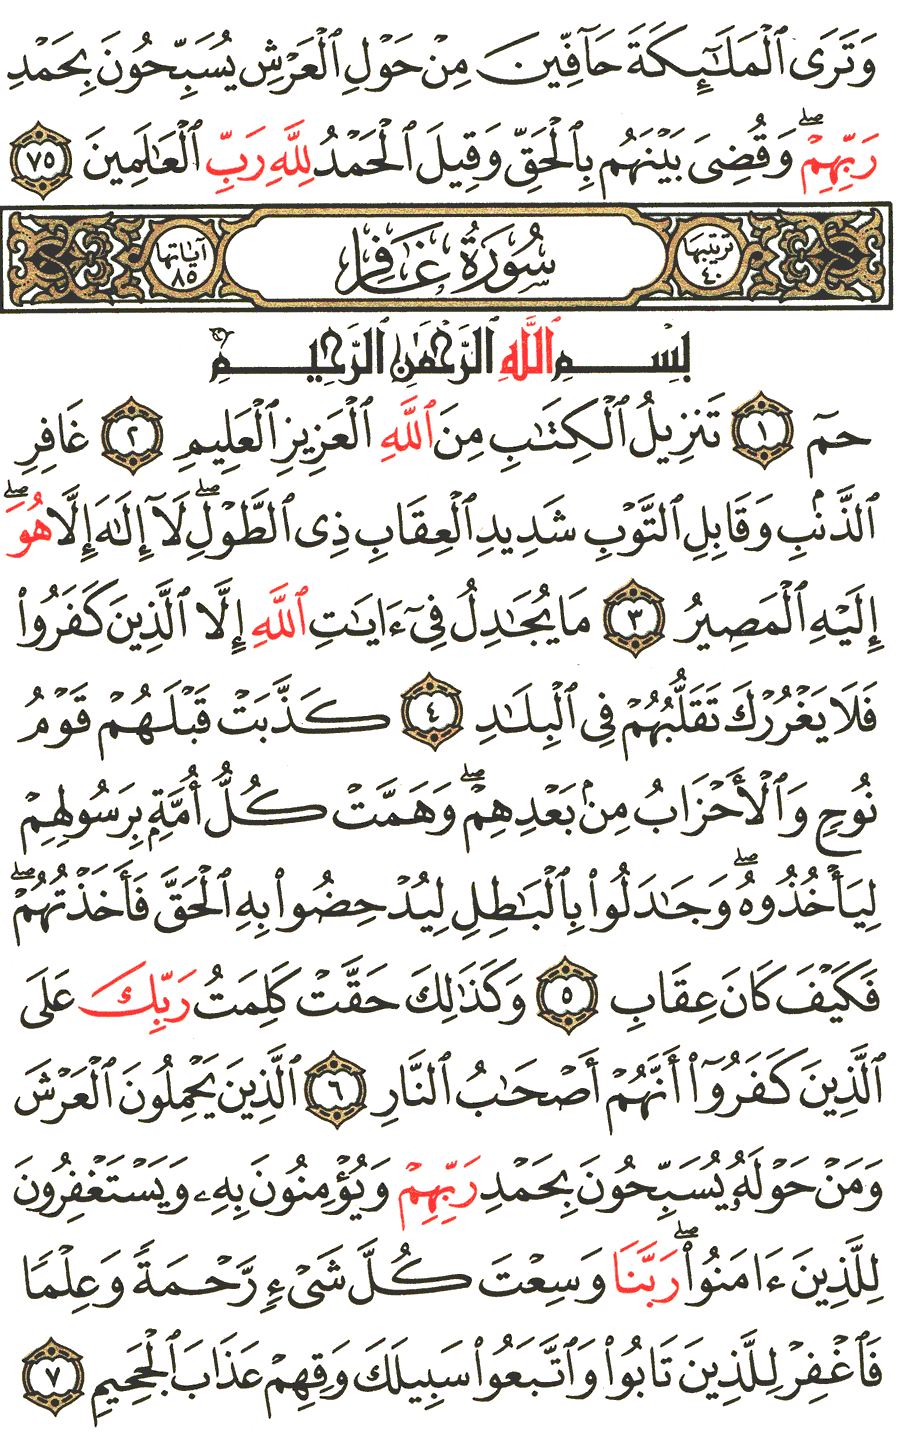 وَتَرَى ٱلْمَلَٰٓئِكَةَ حَآفِّينَ مِنْ حَوْلِ ٱلْعَرْشِ يُسَبِّحُونَ بِحَمْدِ
رَبِّهِمْ ۖ وَقُضِىَ بَيْنَهُم بِٱلْحَقِّ وَقِيلَ ٱلْحَمْدُ لِلَّهِ رَبِّ ٱلْعَٰلَمِينَ ٧٥
ترتيبها ٤٠ سُورَةُ غَافِرٍ آياتها ٨٥
بِسْمِ ٱللَّهِ ٱلرَّحْمَٰنِ ٱلرَّحِيمِ
حمٓ ١ تَنزِيلُ ٱلْكِتَٰبِ مِنَ ٱللَّهِ ٱلْعَزِيزِ ٱلْعَلِيمِ ٢ غَافِرِ
ٱلذَّنۢبِ وَقَابِلِ ٱلتَّوْبِ شَدِيدِ ٱلْعِقَابِ ذِى ٱلطَّوْلِ ۖ لَآ إِلَٰهَ إِلَّا هُوَ ۖ
إِلَيْهِ ٱلْمَصِيرُ ٣ مَا يُجَٰدِلُ فِىٓ ءَايَٰتِ ٱللَّهِ إِلَّا ٱلَّذِينَ كَفَرُوا۟
فَلَا يَغْرُرْكَ تَقَلُّبُهُمْ فِى ٱلْبِلَٰدِ ٤ كَذَّبَتْ قَبْلَهُمْ قَوْمُ
نُوحٍ وَٱلْأَحْزَابُ مِنۢ بَعْدِهِمْ ۖ وَهَمَّتْ كُلُّ أُمَّةٍۭ بِرَسُولِهِمْ
لِيَأْخُذُوهُ ۖ وَجَٰدَلُوا۟ بِٱلْبَٰطِلِ لِيُدْحِضُوا۟ بِهِ ٱلْحَقَّ فَأَخَذْتُهُمْ ۖ
فَكَيْفَ كَانَ عِقَابِ ٥ وَكَذَٰلِكَ حَقَّتْ كَلِمَتُ رَبِّكَ عَلَى
ٱلَّذِينَ كَفَرُوٓا۟ أَنَّهُمْ أَصْحَٰبُ ٱلنَّارِ ٦ ٱلَّذِينَ يَحْمِلُونَ ٱلْعَرْشَ
وَمَنْ حَوْلَهُۥ يُسَبِّحُونَ بِحَمْدِ رَبِّهِمْ وَيُؤْمِنُونَ بِهِۦ وَيَسْتَغْفِرُونَ
لِلَّذِينَ ءَامَنُوا۟ ۖ رَبَّنَا وَسِعْتَ كُلَّ شَىْءٍ رَّحْمَةً وَعِلْمًا
فَٱغْفِرْ لِلَّذِينَ تَابُوا۟ وَٱتَّبَعُوا۟ سَبِيلَكَ وَقِهِمْ عَذَابَ ٱلْجَحِيمِ ٧